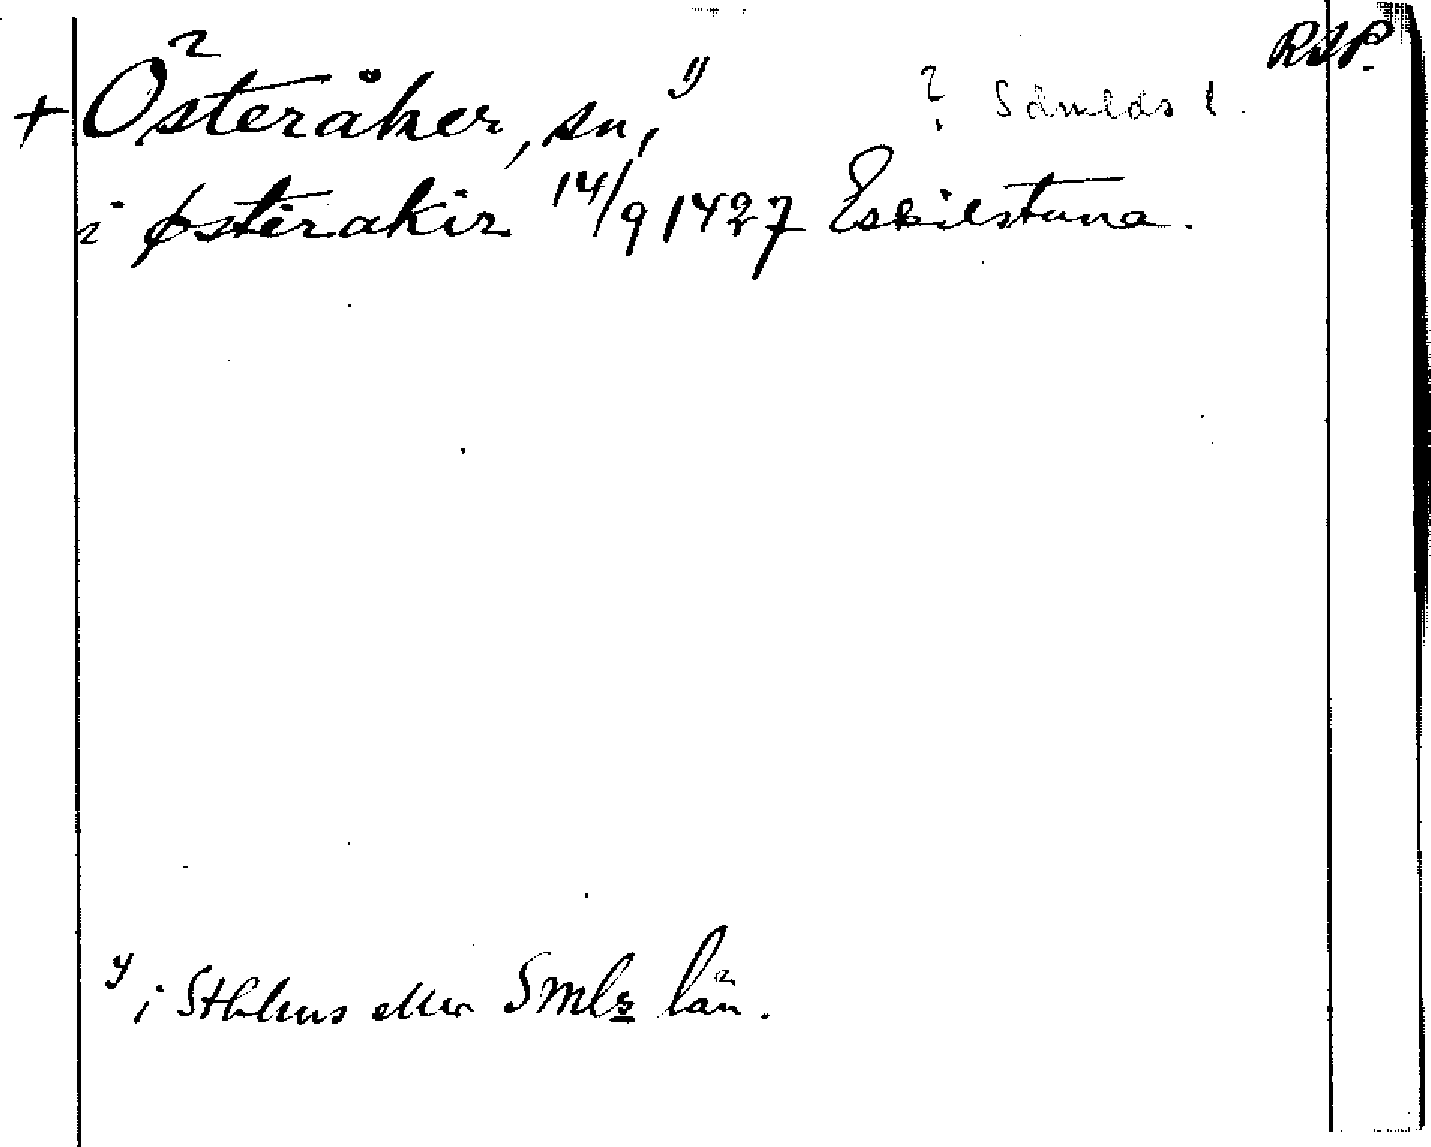 RSP.
+ Österåker, sn, 1) ? Sömlds l.
i østerakir 14/9 1427 Eskilstuna.
1) i Sthlms eller Smls län.